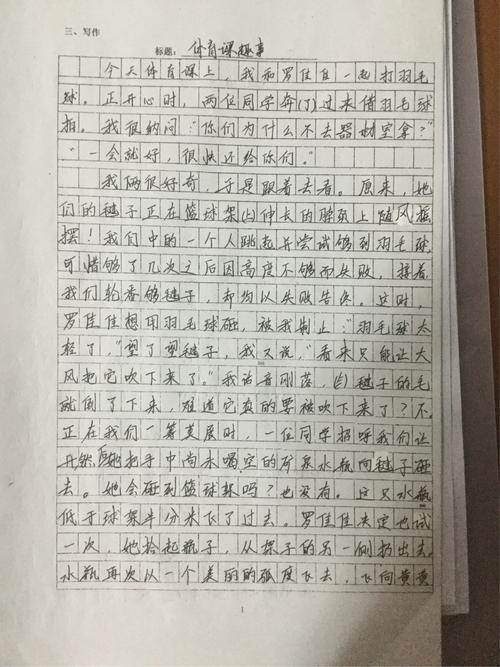 三、写作
标题：体育课趣事
今天体育课上，我和罗佳佳一起打羽毛
球。正开心时，两位同学奔(了)过来借羽毛球
拍。我很纳闷："你们为什么不去器材室拿？"
"一会就好，很快还给你们。"
我俩很好奇，于是跟着去看。原来，她
们的毽子正在篮球架(上)伸长的脖颈上随风摇
摆！我们中的一个人跳起并尝试够到羽毛球
可惜够了几次之后因高度不够而失败，接着
我们轮番够毽子，却均以失败告终。这时，
罗佳佳想用羽毛球砸，被我制止："羽毛球太
轻了，"望了望毽子，我又说，"看来只能让大
风把它吹下来了。"我话音刚落，毽子的毛
就倒了下来，难道它真的要被吹下来了？不。
正在我们一筹莫展时，一位同学招呼我们让
开然后她把手中尚未喝空的矿泉水瓶向毽子砸
去。她会砸到篮球架吗？也没有。这只水瓶
低于球架半分米飞了过去。罗佳佳决定也试
一次，她拾起瓶子，从架子的另一侧扔出去。
水瓶再次从一个美丽的弧度飞去，飞向黄黄
1